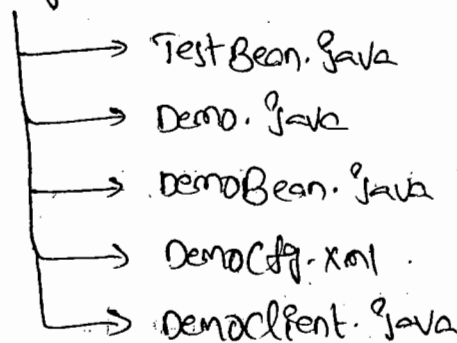 TestBean.java
Demo.java
DemoBean.java
DemoCfg.xml
DemoClient.java